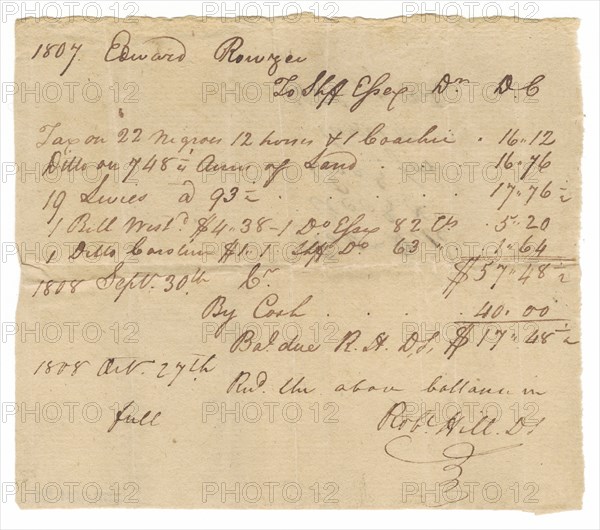 1807. Edward Rowzee
To Shff Essex Dr. D. C
Tax on 22 Negroes 12 horses & 1 Coachee . 16.12
Ditto on 748 ½ Acres of Land . . . 16.76
19 Levies @ 93 ½ . . . . . 17.76 ½
1 Bill West.d $4.38 - 1 Do Essex 82 Cts . 5.20
1 Ditto Caroline $1.1 Shff Do 63 " . 1.64
$57.48 ½
1808 Sept. 30th Cr.
By Cash . . . . 40.00
Bal. due R. H. DS, $17.48 ½
1808 Oct. 27th
Recd. the above ballance in
full Robt. Hill. DS